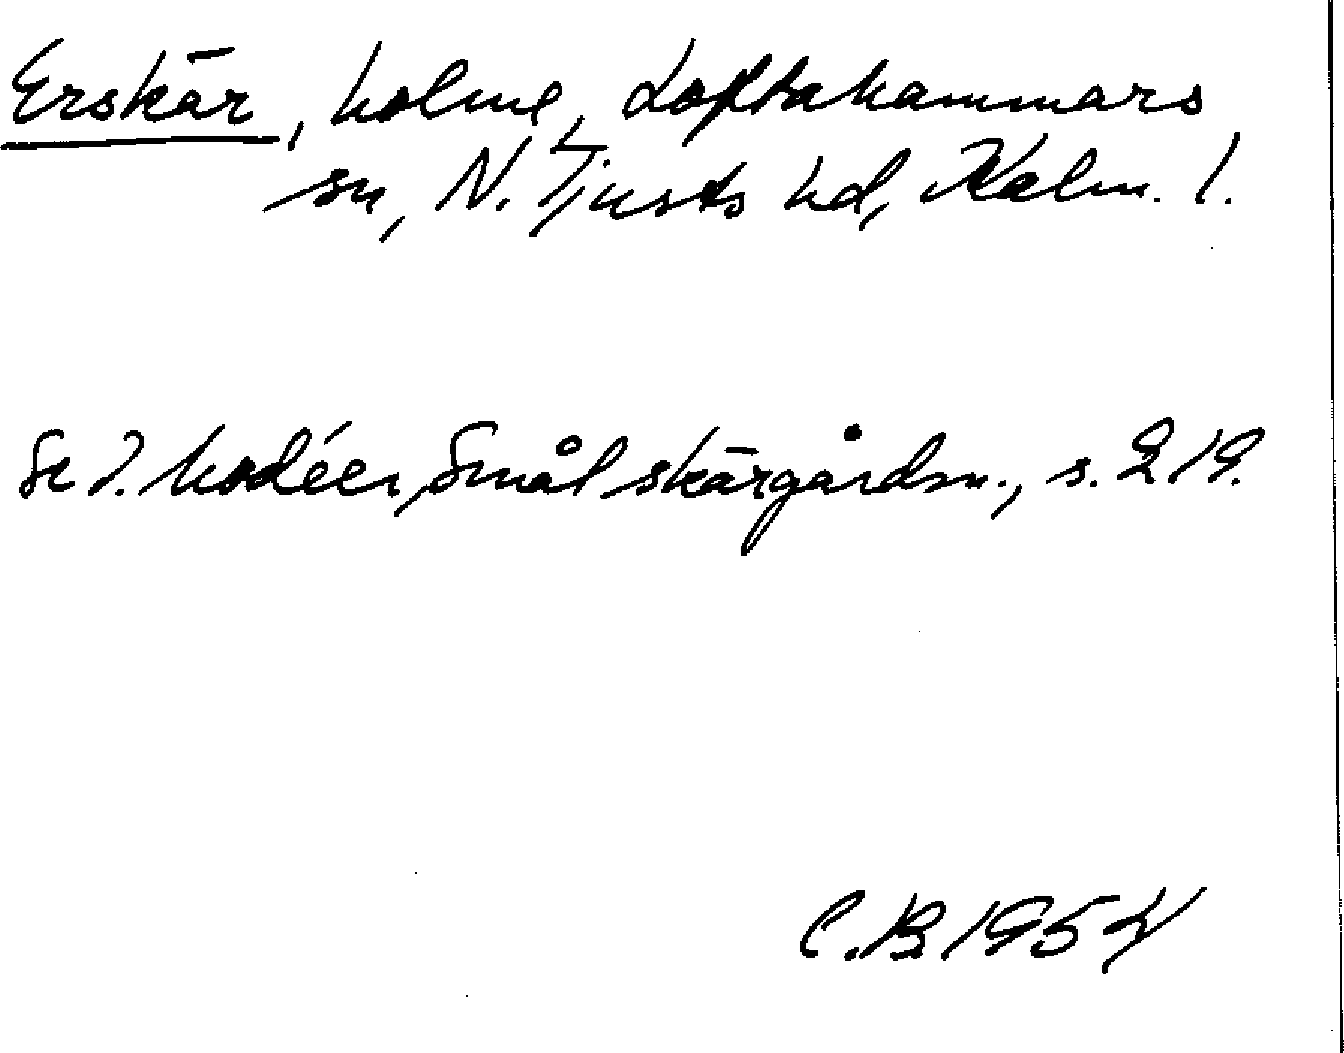 Erskär, holme, Loftahammars
sn, N. Tjusts hd, Kalm. l.
Se I. Modéer, Smål skärgårdsn., s. 219.
C.B 1954